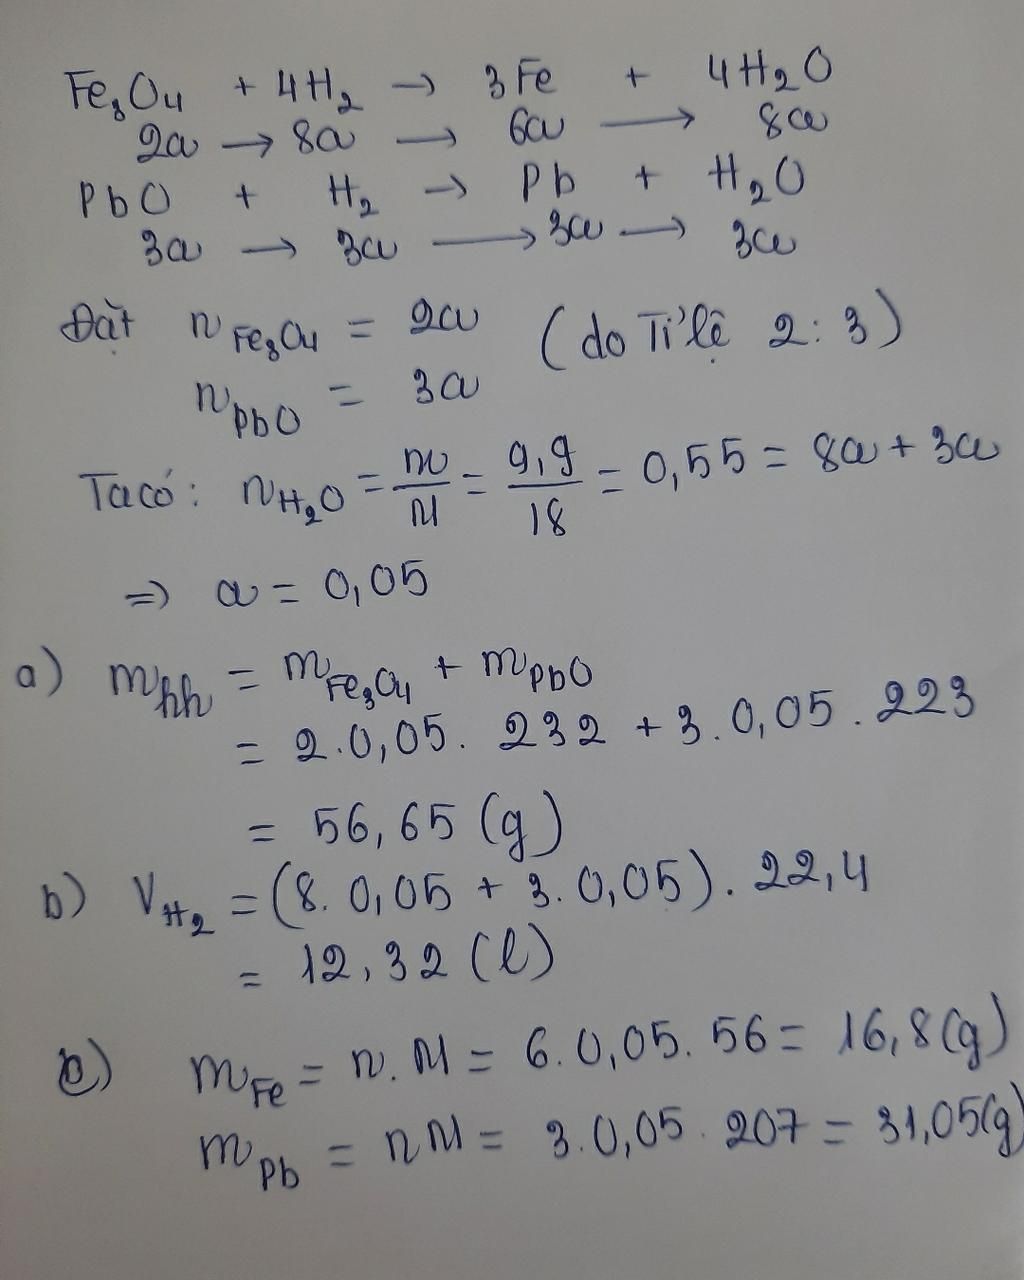 Fe₃O₄ + 4H₂ → 3Fe + 4H₂O
2a → 8a → 6a → 8a
PbO + H₂ → Pb + H₂O
3a → 3a → 3a → 3a
Đặt n Fe₃O₄ = 2a (do Tỉ lệ 2:3)
n PbO = 3a
Ta có: n H₂O = m/M = 9,9/18 = 0,55 = 8a + 3a
=> a = 0,05
a) m hh = m Fe₃O₄ + m PbO
= 2.0,05. 232 + 3.0,05.223
= 56,65 (g)
b) V H₂ = (8.0,05 + 3.0,05).22,4
= 12,32 (l)
c) m Fe = n.M = 6.0,05.56 = 16,8(g)
m Pb = nM = 3.0,05.207 = 31,05(g)